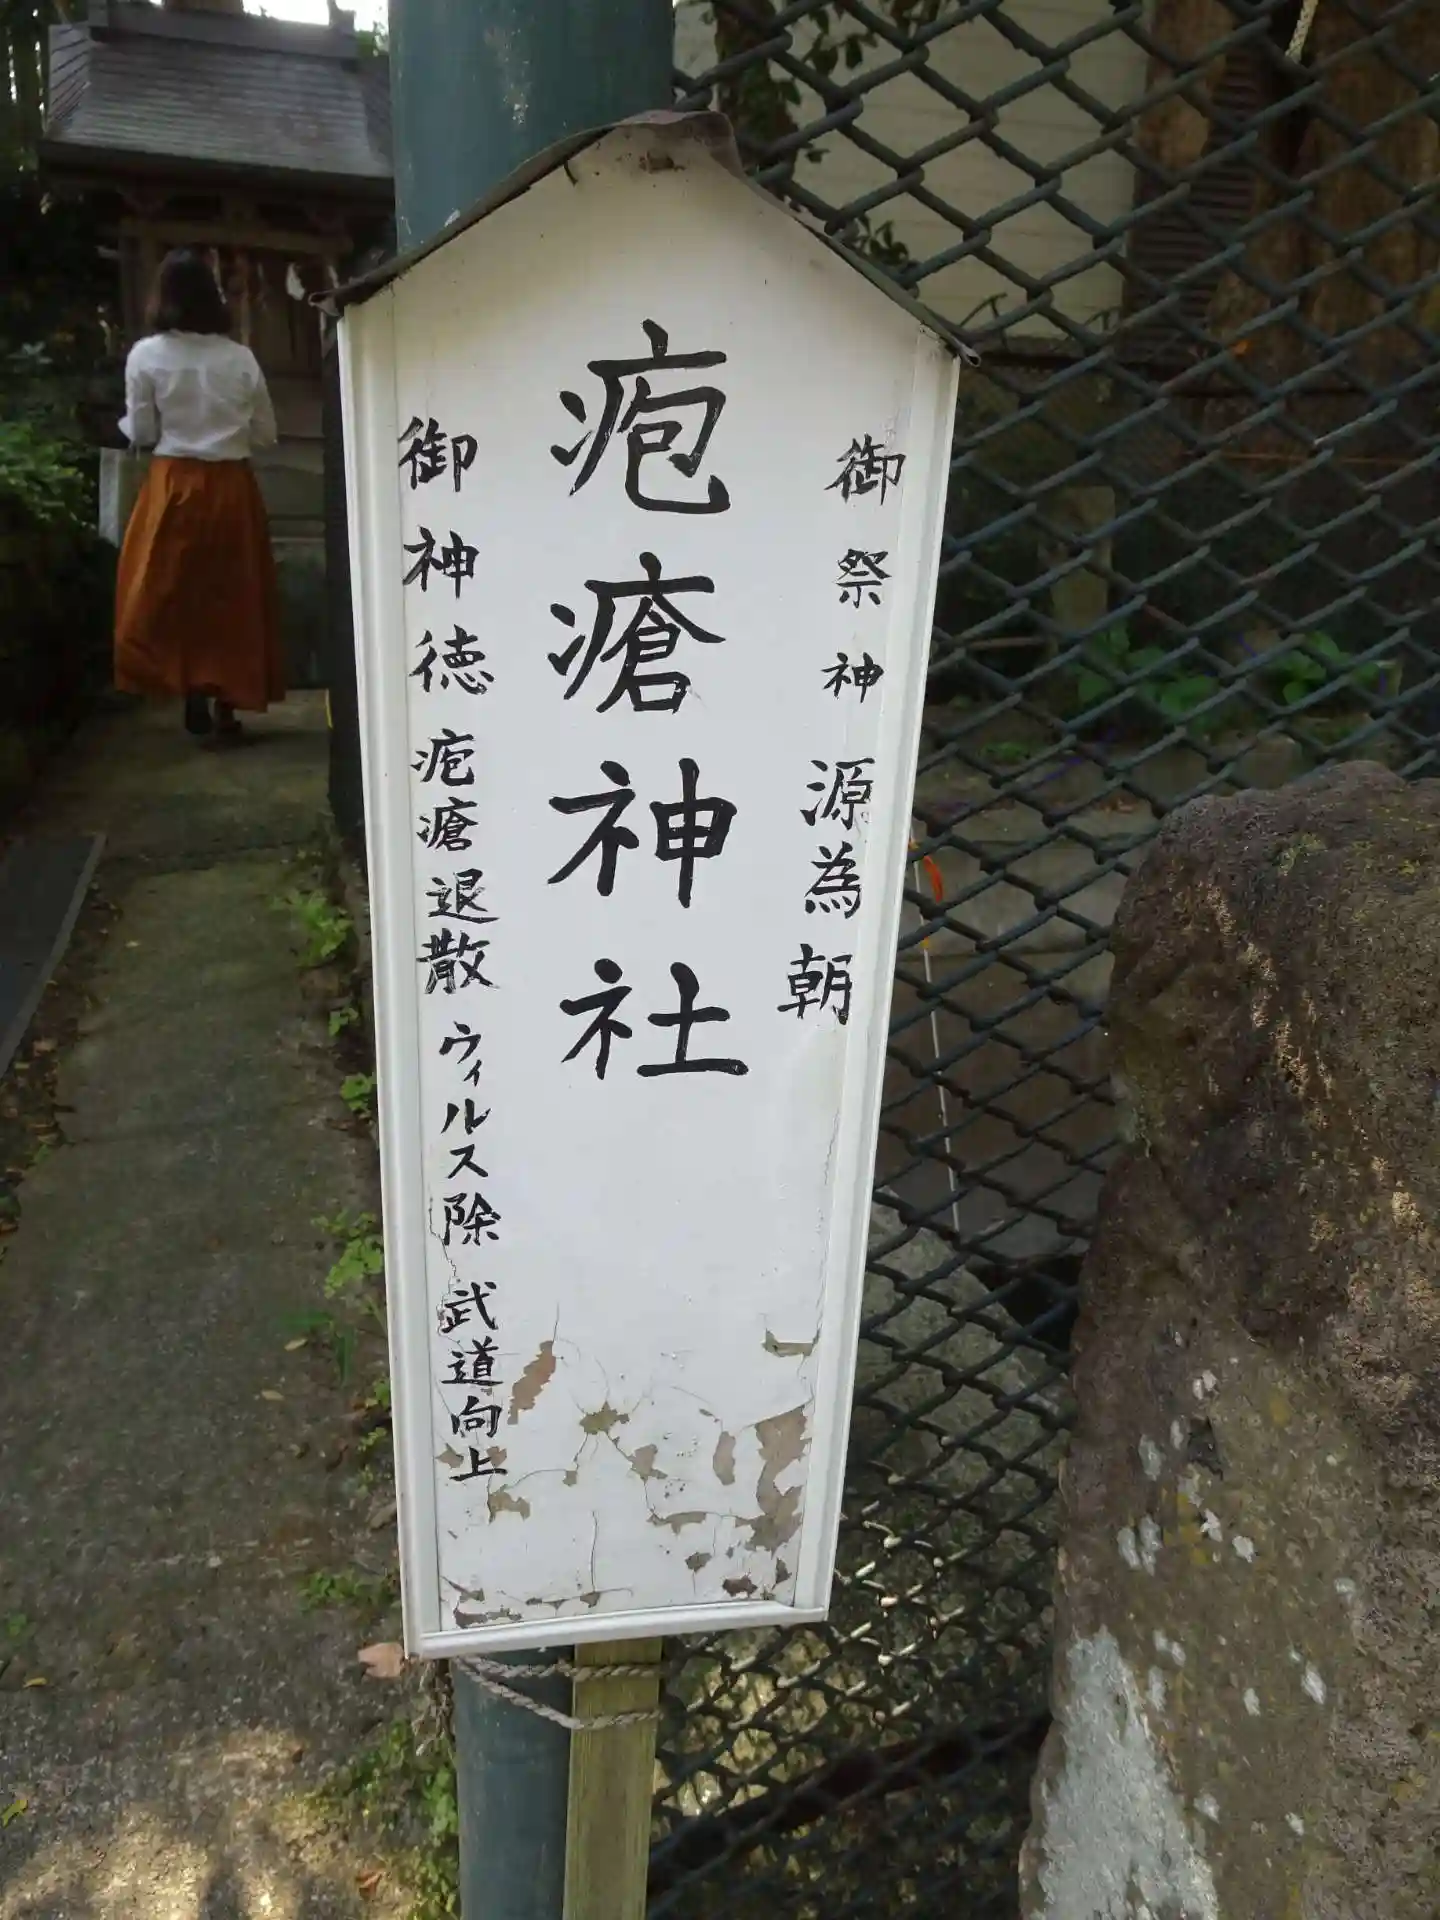 御祭神 源為朝
疱瘡神社
御神徳 疱瘡退散 ウィルス除 武道向上